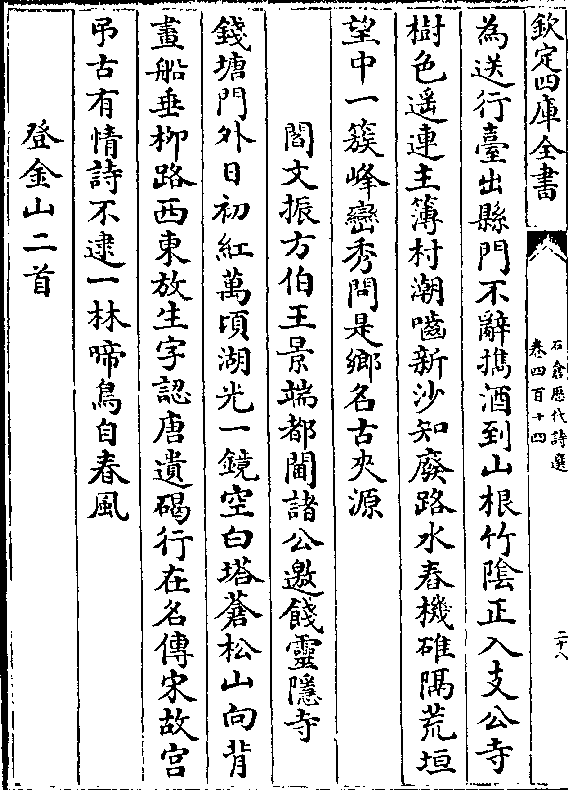 欽定四庫全書
石倉歷代詩選
卷四百十四
二十八
為送行臺出縣門不辭攜酒到山根竹陰正入支公寺
樹色遥連主簿村潮嚙新沙知廢路水舂機碓隔荒垣
望中一簇峰巒秀問是鄉名古夾源
閻文振方伯王景端都閫諸公邀餞靈隱寺
錢塘門外日初紅萬頃湖光一鏡空白塔蒼松山向背
畫船垂柳路西東放生字認唐遺碣行在名傳宋故宫
弔古有情詩不逮一林啼鳥自春風
登金山二首